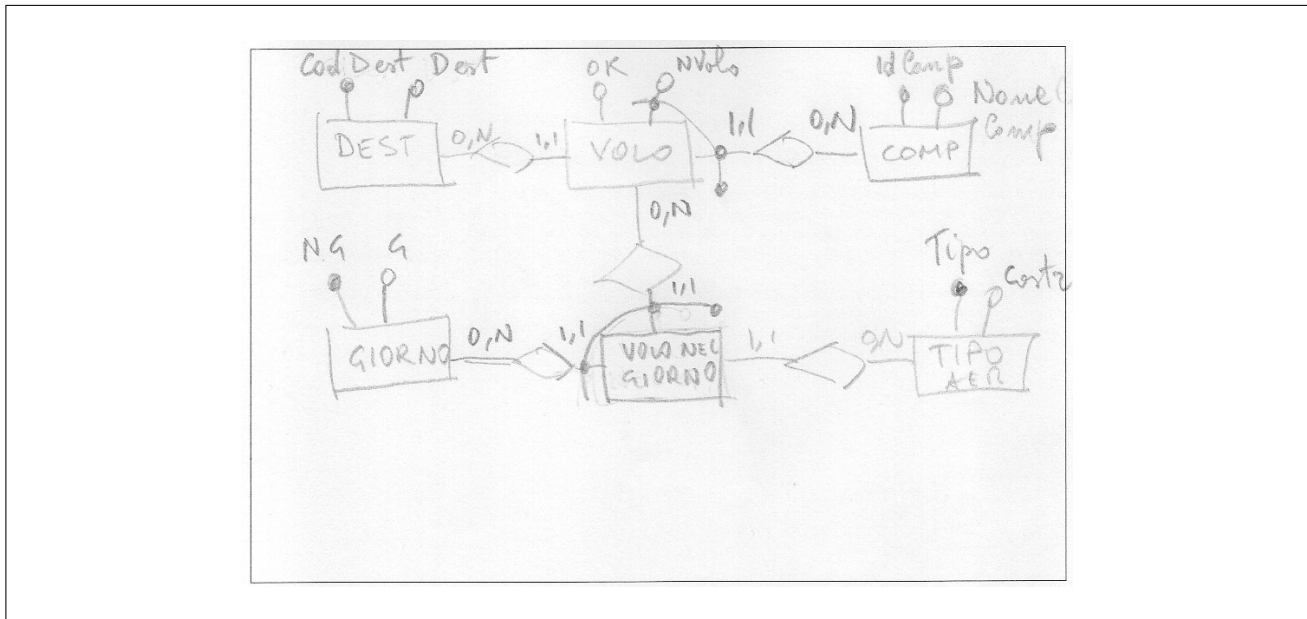 CodDest Dest
OK
NVolo
IdComp
Nome
Comp
DEST
0,N
1,1
VOLO
1,1
0,N
COMP
0,N
NG
G
Tipo
1,1
GIORNO
0,N
1,1
VOLO NEL
GIORNO
1,1
0,N
TIPO
AER